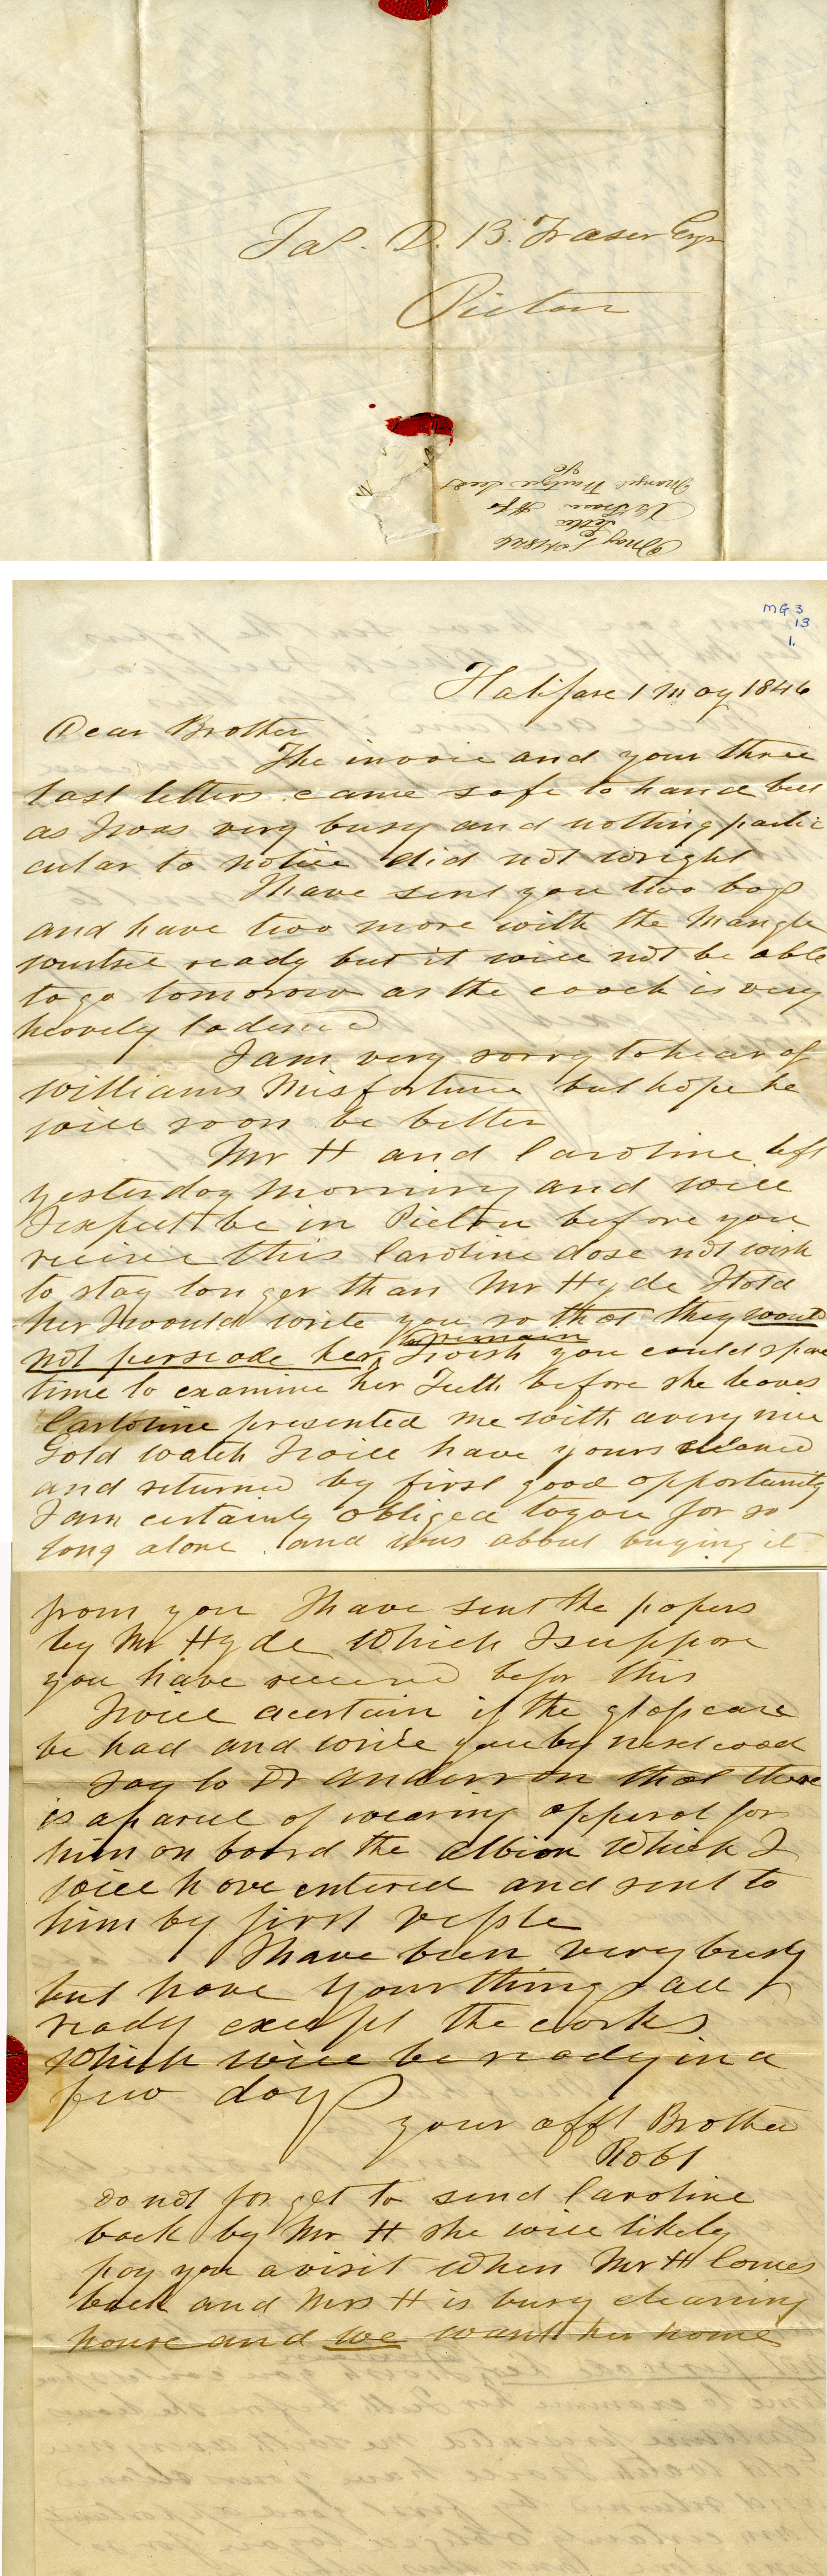 Jas. D. B. Fraser Esqr
Pictou
May 1st 1846
Letter
R Fraser Hfx
Mangel Wurtzel Seed
&c
MG 3
13
1.
Halifax 1 May 1846
Dear Brother
The invoice and your three
last letters came safe to hand but
as I was very busy and nothing partic
cular to notice did not wright
I have sent you two bags
and have two more with the Mangle
wurtsel ready but it will not be able
to go tomorow as the coach is very
heavely ladened
I am very sorry to hear of
Williams Misfortune but hope he
will soon be better
Mr H and Caroline left
yesterday morning and will
I expect be in Pictou before you
receive this Caroline dose not wish
to stay longer than Mr Hyde I told
her I would write you so that they would
not perswade her to remain I wish you could spare
time to examine her Teeth before she leaves
Caroline presented me with a very nice
Gold watch I will have yours cleaned
and returned by first good opportunity
I am certainly obliged to you for so
long a lone and was about buying it
from you I have sent the papers
by Mr Hyde which I suppose
you have received befor this
I will acertain if the glass can
be had and write you by next coach
Say to Dr Anderson that there
is a parcel of wearing apperal for
him on board the Albion which I
will have entered and sent to
him by first vessle
I have been very busy
but have your things all
ready except the corks
which will be ready in a
few days
your afft Brother
Robt
do not forget to send Caroline
back by Mr H she will likely
pay you a visit when Mr H Comes
back and Mrs H is busy cleaning
house and we want her home